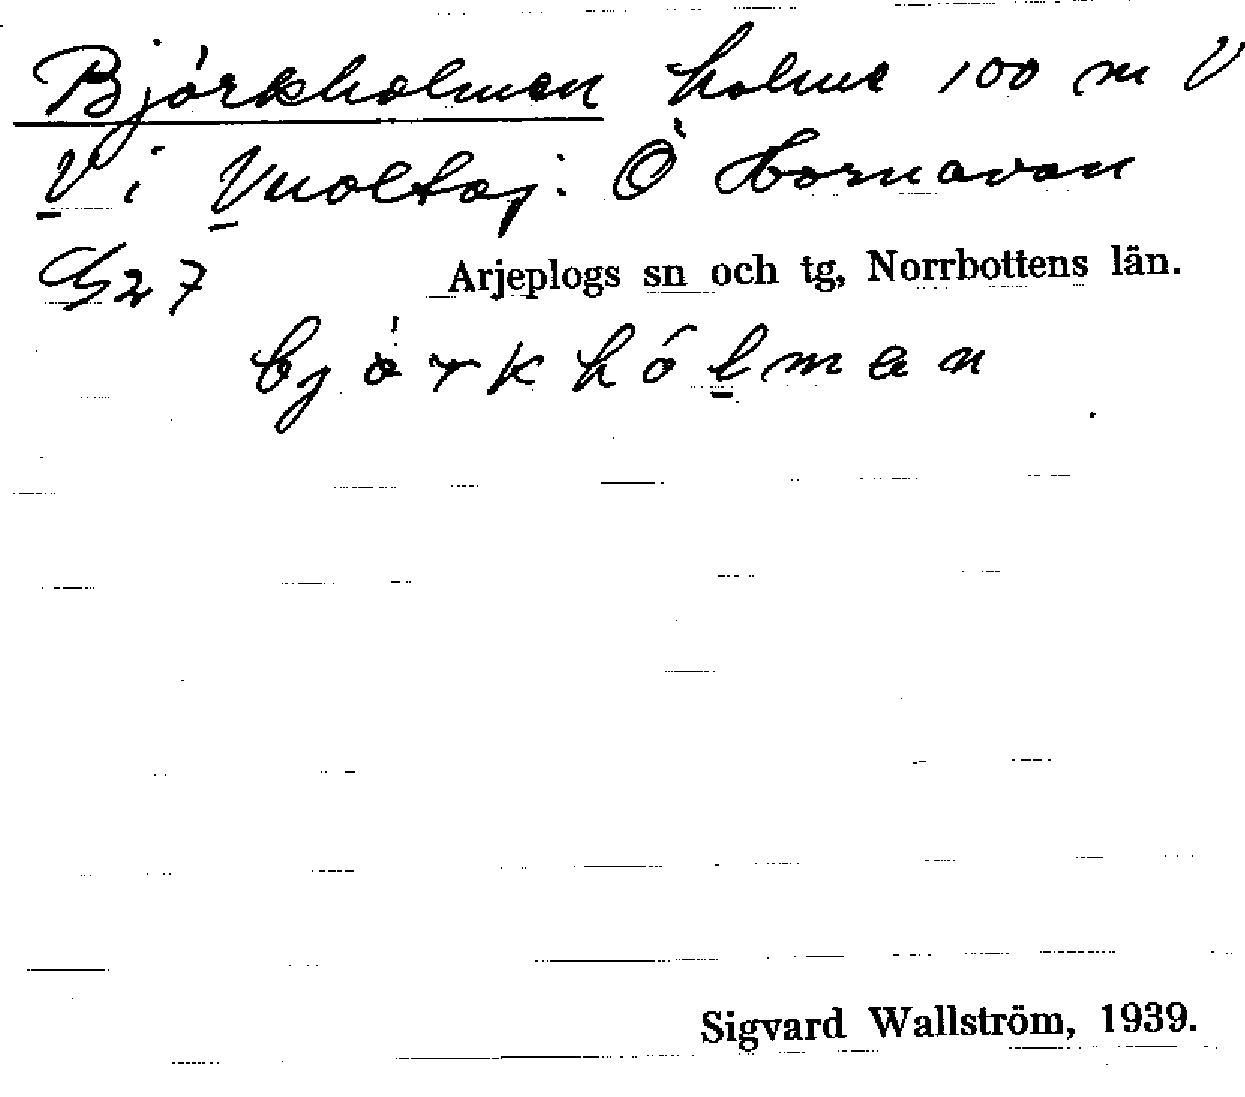 Björkholmen holme 100 m V
V i Vuoltaj: Ö Hornavan
G27 Arjeplogs sn och tg, Norrbottens län.
björkhólman
Sigvard Wallström, 1939.